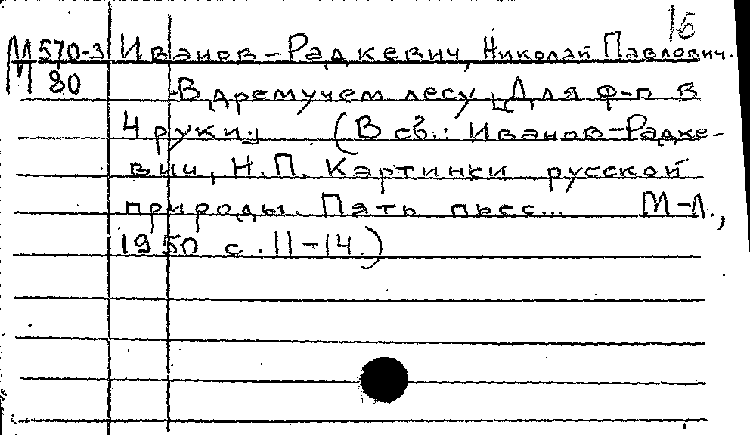 15
М 570-3 Иванов-Радкевич, Николай Павлович.
80 В дремучем лесу, [Для ф-п в
4 руки] (В сб.: Иванов-Радке-
вич, Н.П. Картинки русской
природы. Пять пьес... М-Л.,
1950 с. 11-14.)